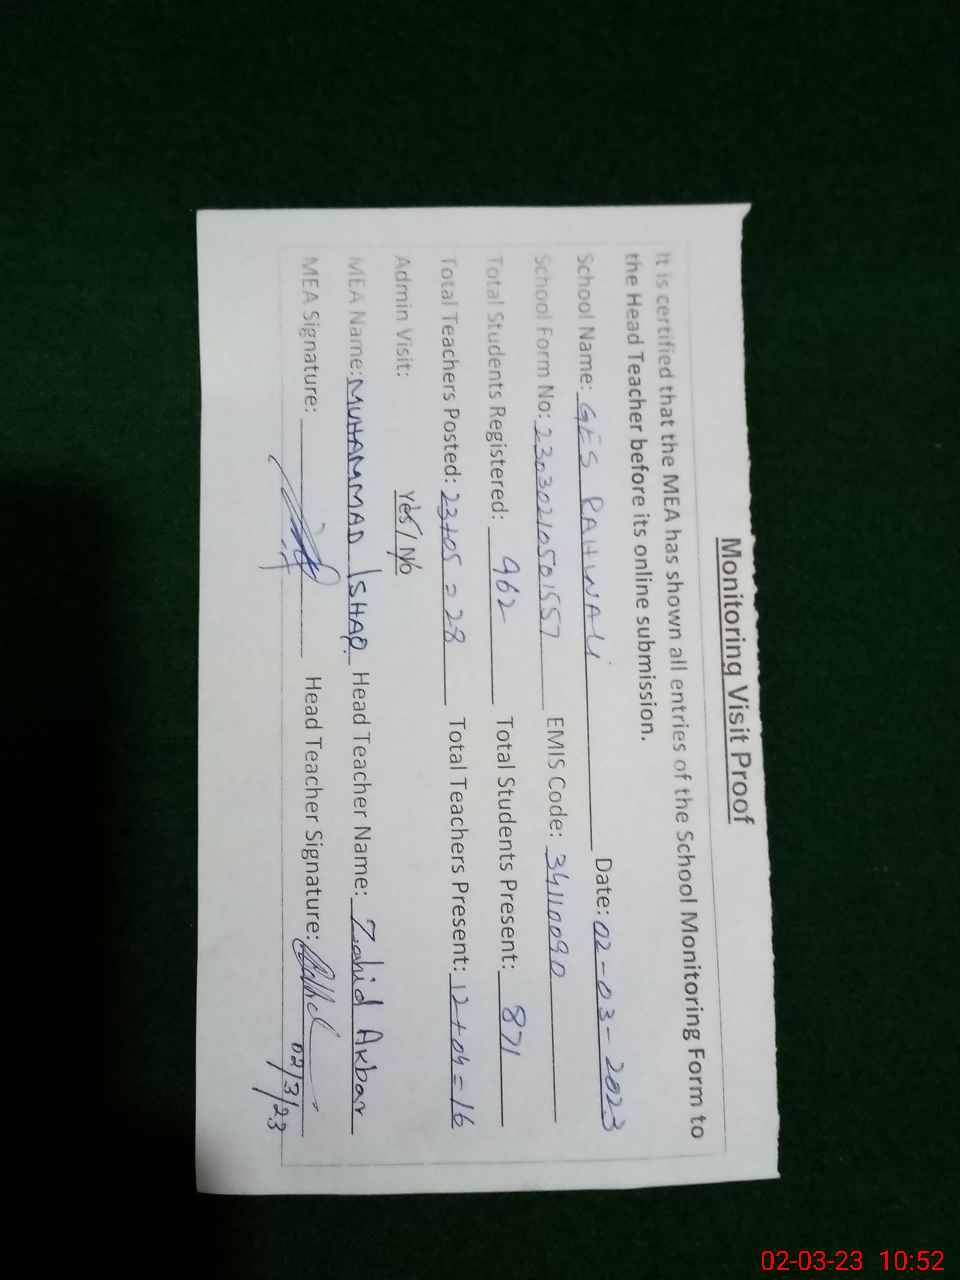 Monitoring Visit Proof
It is certified that the MEA has shown all entries of the School Monitoring Form to
the Head Teacher before its online submission.
School Name: GES PAHWALI Date: 02-03-2023
School Form No: 23030210501557 EMIS Code: 34110090
Total Students Registered: 962 Total Students Present: 871
Total Teachers Posted: 23+05 = 28 Total Teachers Present: 12+04=16
Admin Visit: Yes/No
MEA Name: MUHAMMAD ISHAQ Head Teacher Name: Zahid Akbar
MEA Signature: Head Teacher Signature:
02/3/23
02-03-23 10:52